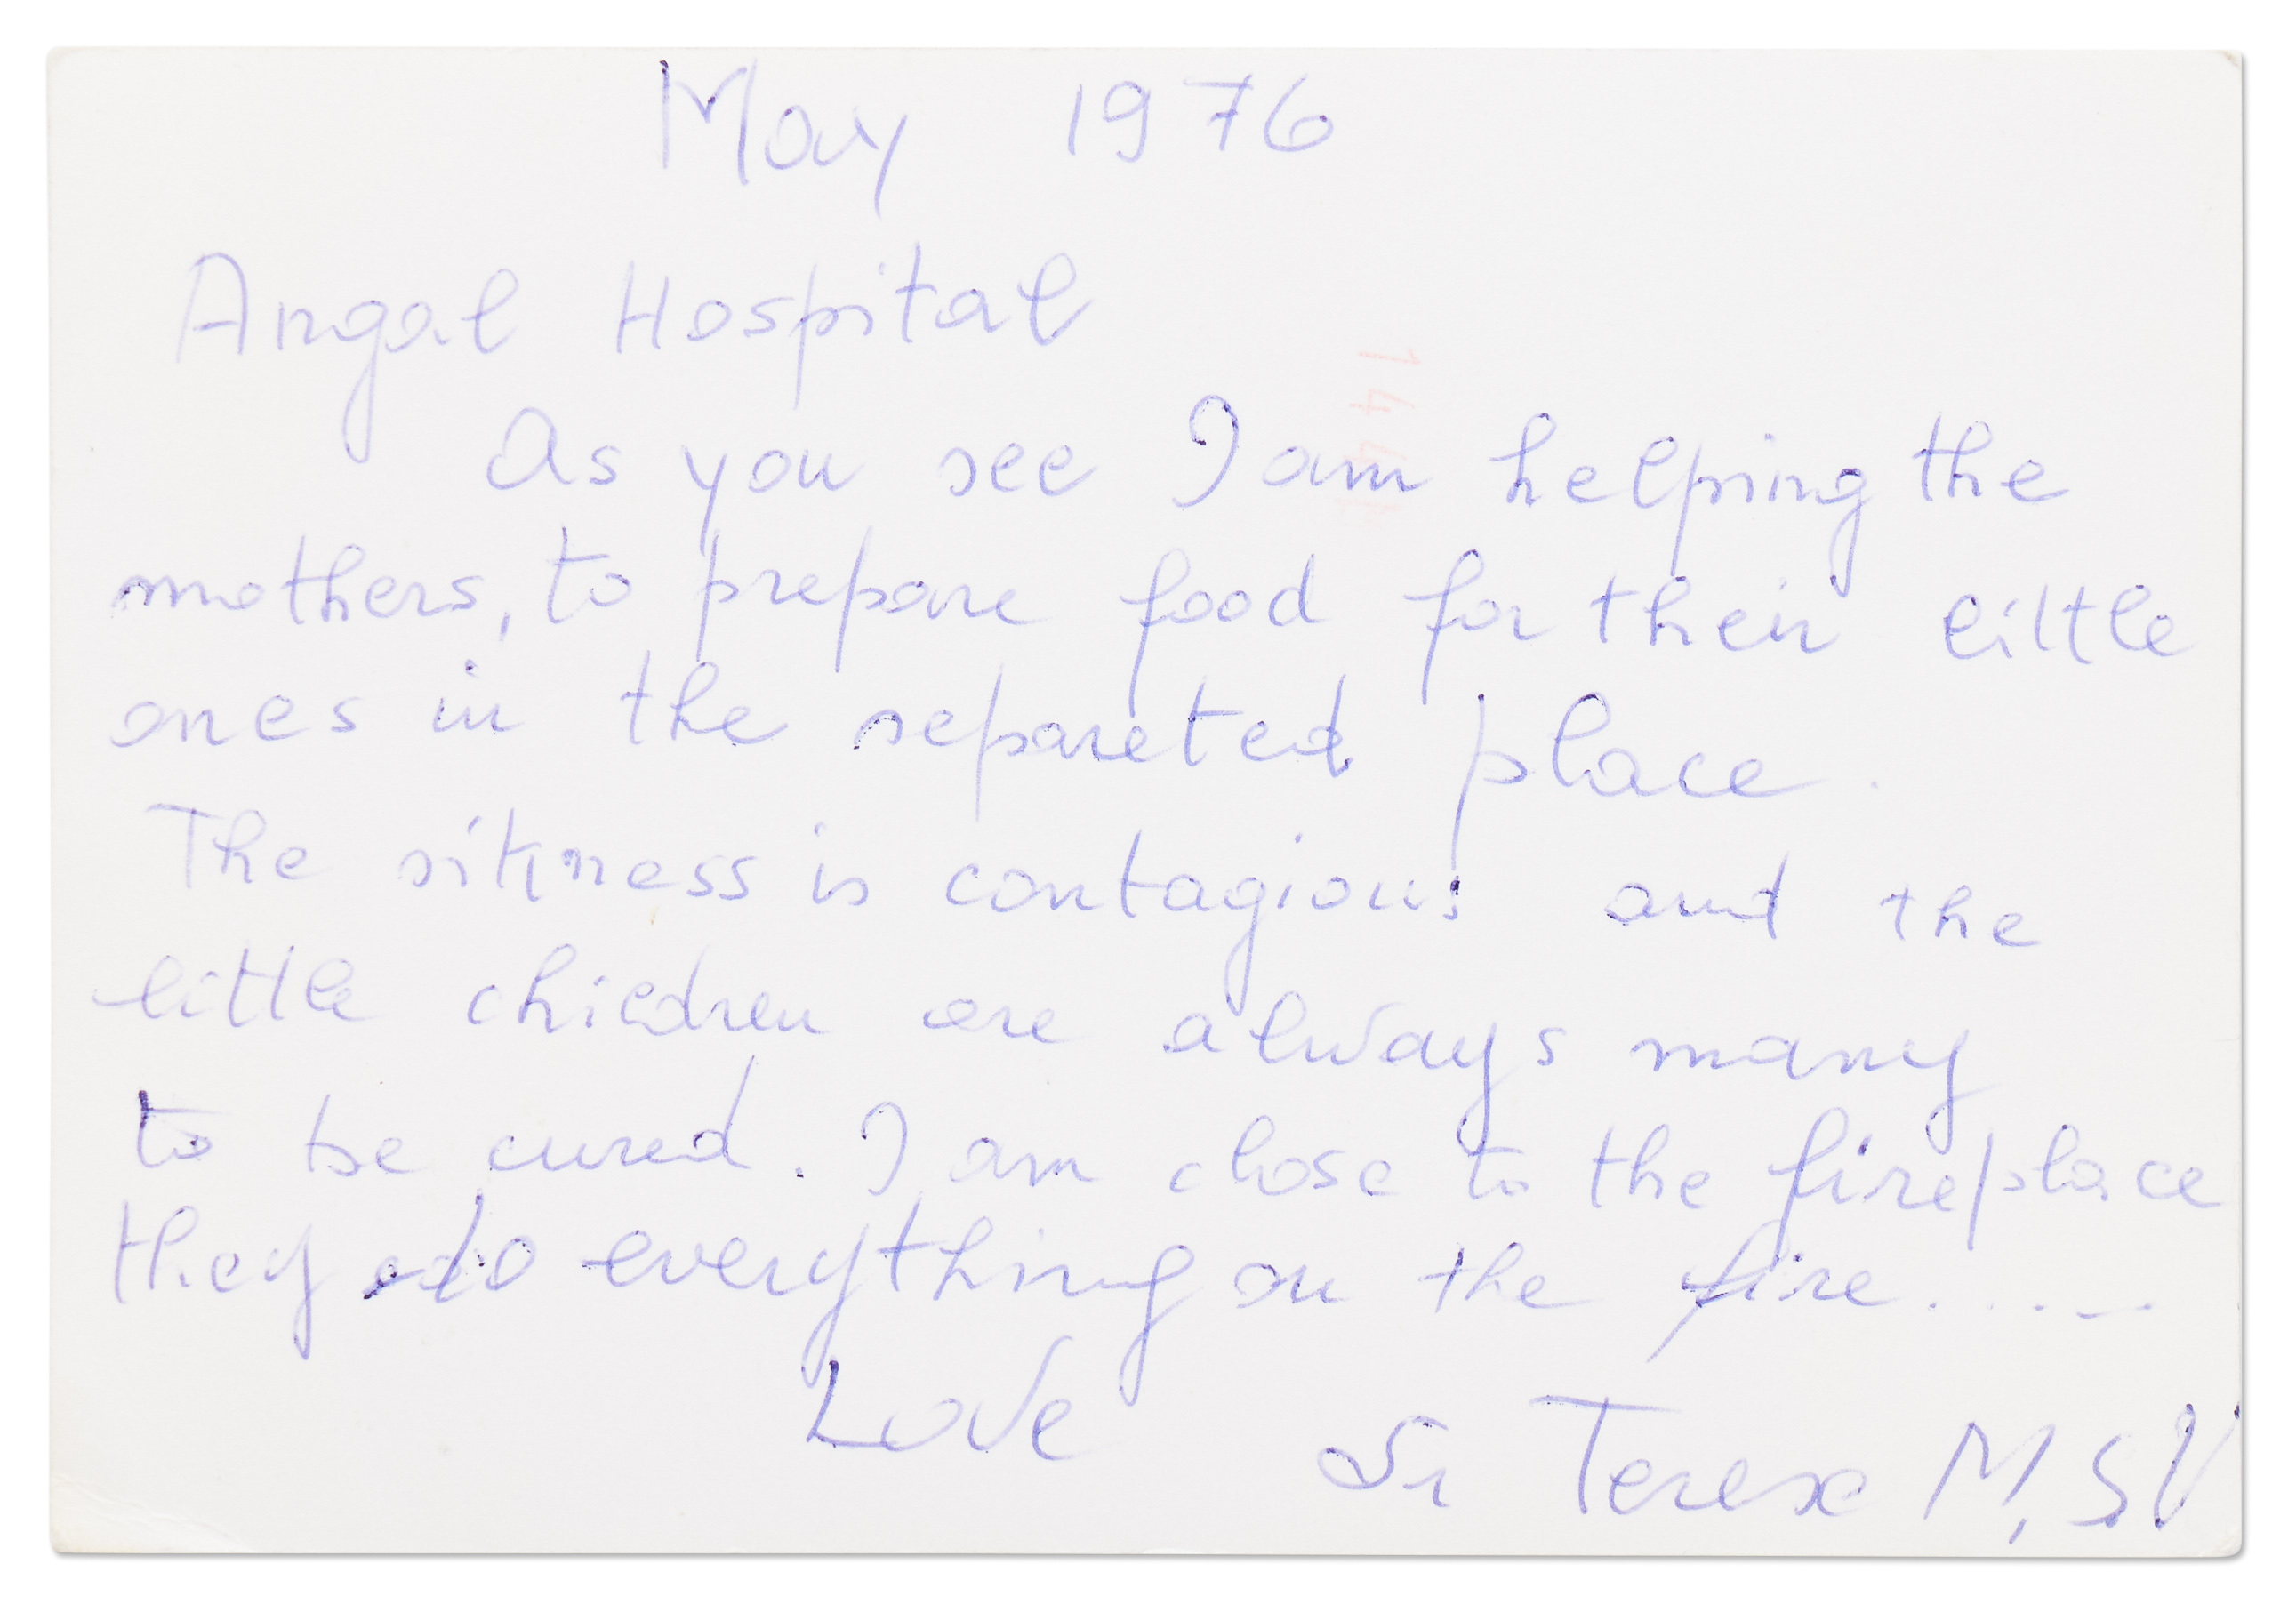 May 1976
Angal Hospital
As you see I am helping the
mothers, to prepare food for their little
ones in the separeted place.
The sikness is contagious and the
little children are always many
to be cured. I am close to the fireplace
they do everything on the fire.....
Love Sr Terese M, SV